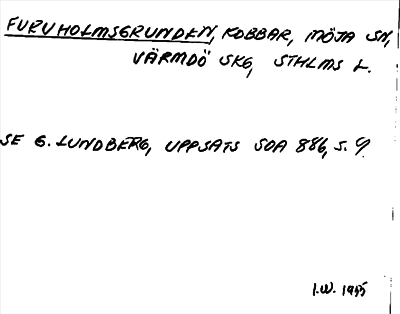 FURUHOLMSGRUNDEN, KOBBAR, MÖJA SN,
VÄRMDÖ SKG, STHLMS L.
SE G. LUNDBERG, UPPSATS SOA 886, S. 9.
I.W. 1995